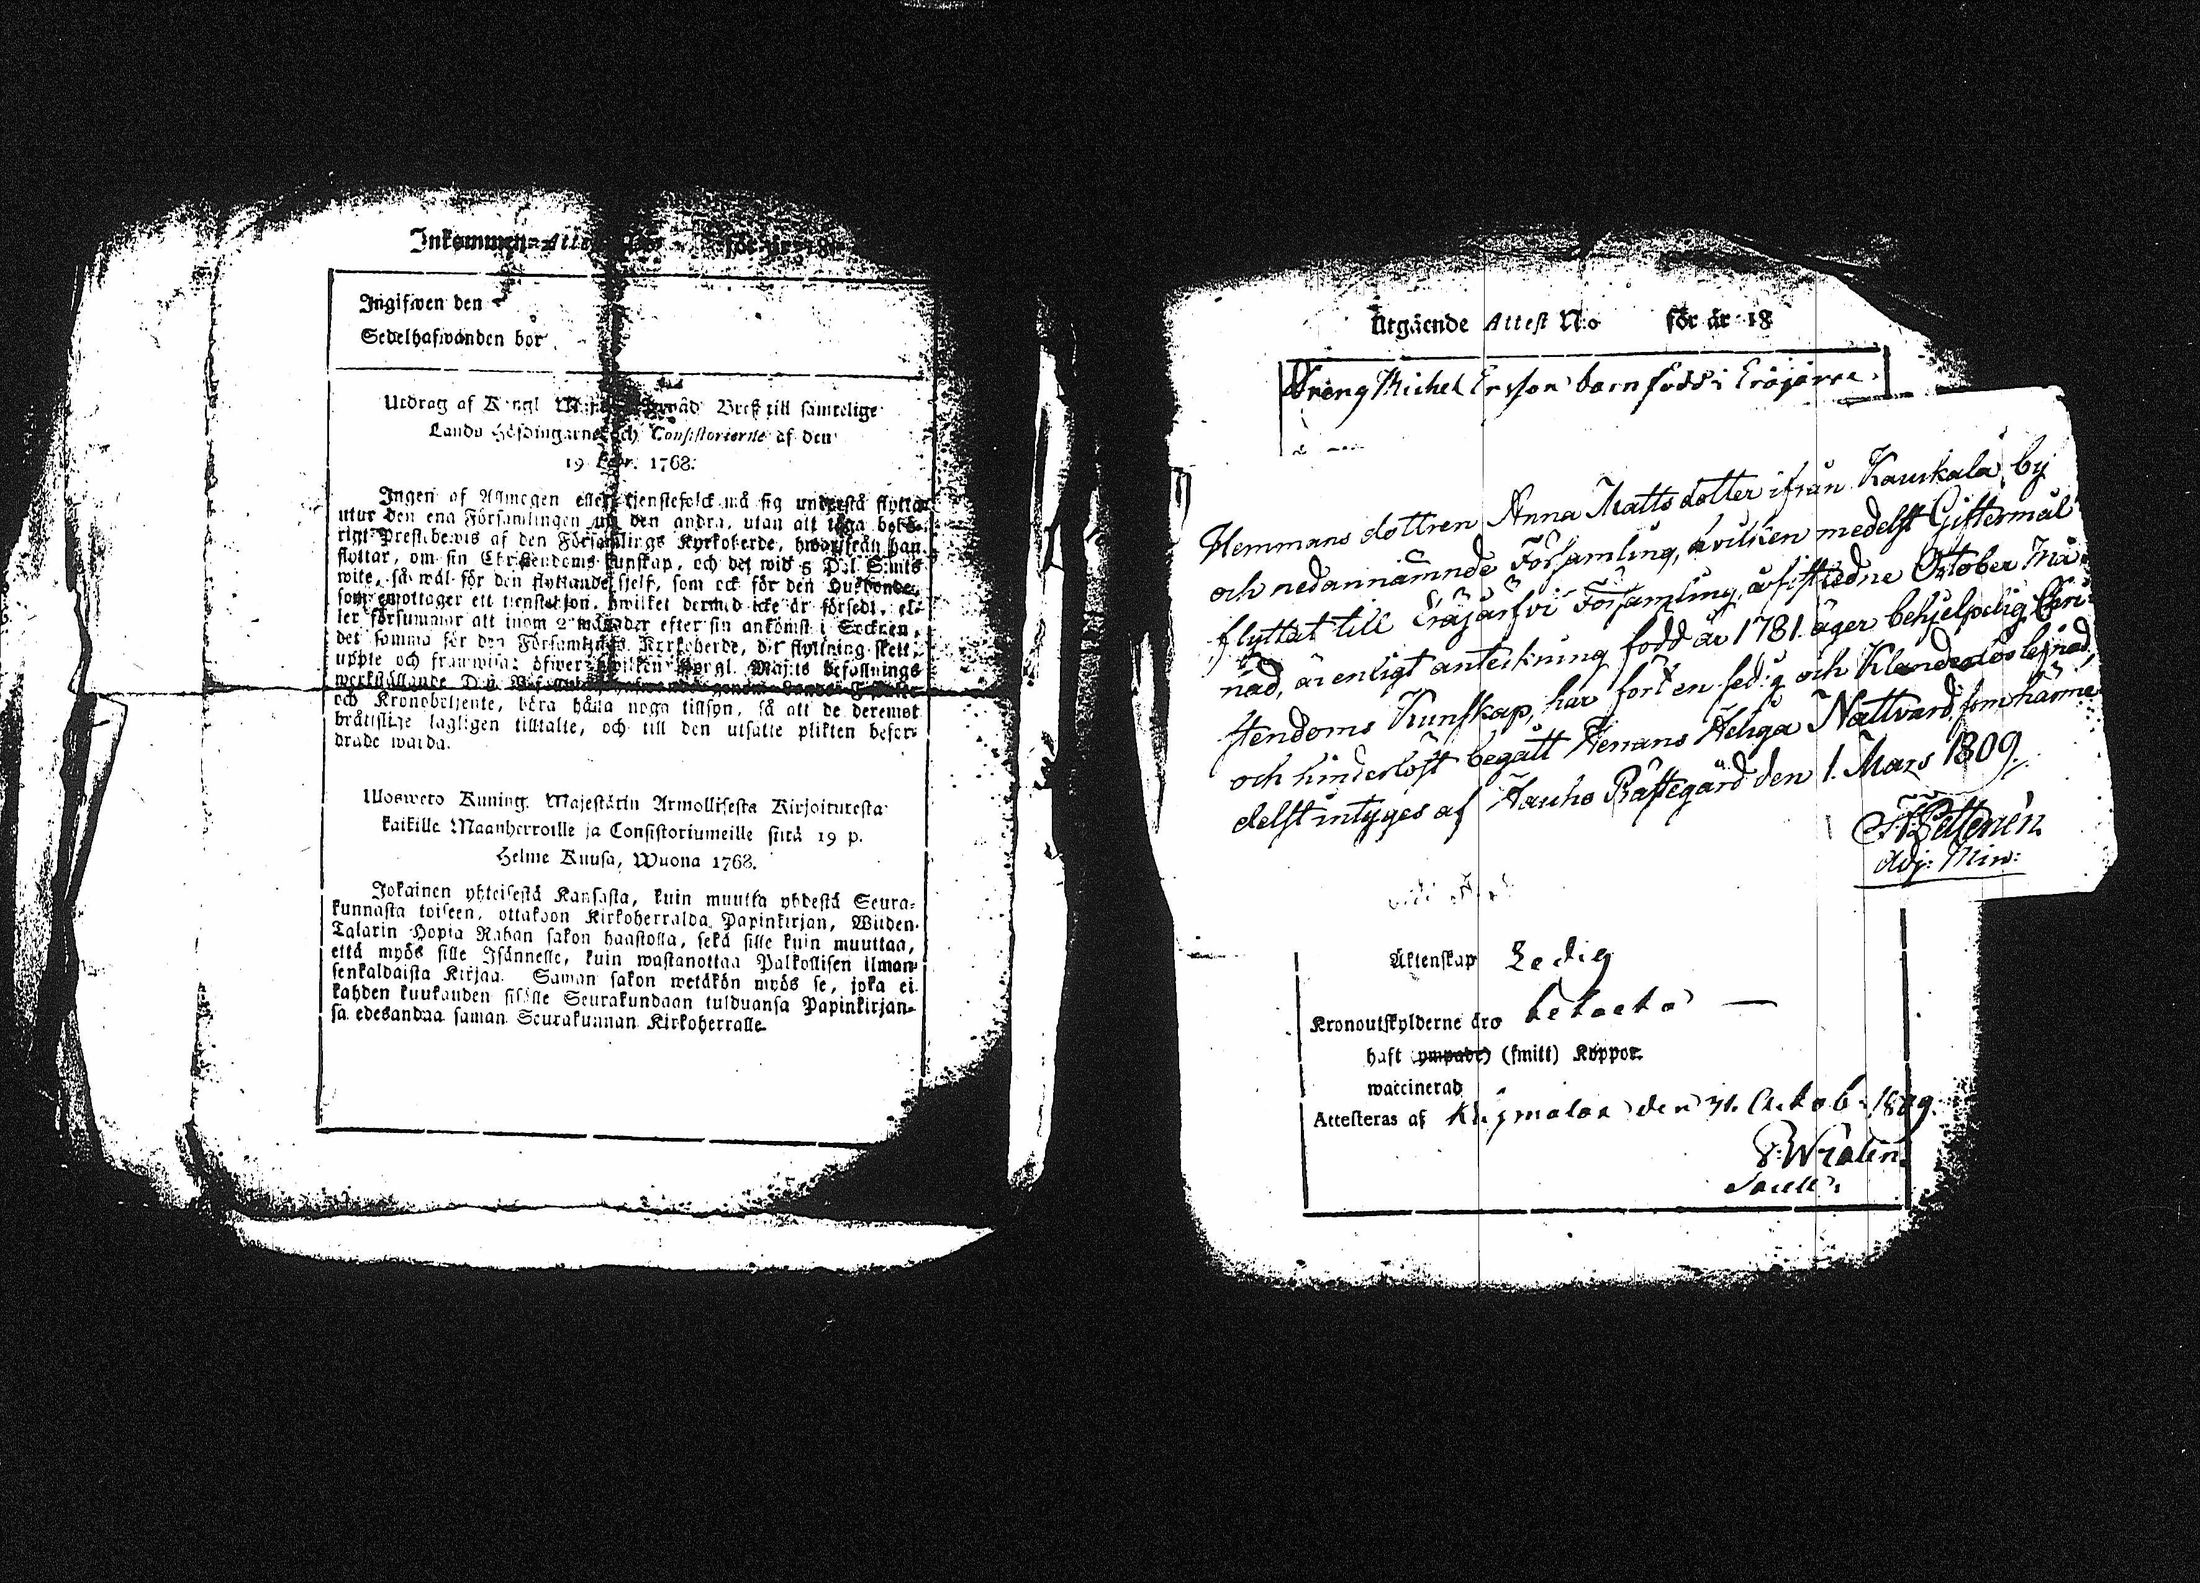 Inkommen= för år 18
Ingifwen den
Sedelhafwanden bor
Utdrag af Kongl Maj:ts Bref till samtelige
Lands Höfdingarne och Consistorierne af den
19 Febr. 1768.
Ingen af Allmogen eller tjenstefolck må sig understå flytta
utur den ena Församlingen uti den andra, utan att äga behö-
rigt Prestbewis af den Församlings Kyrkoherde, hwarifrån han
flyttar, om sin Christendoms kunskap, och det wid 5 Dal. S:mts
wite, så wäl för den flyttande sjelf, som ock för den Husbonde,
som emottager ett tienstehjon, hwilket dermed icke är försedt, el-
ler försummar att inom 2 månader efter sin ankomst i Socknen,
det samma för den Församlings Kyrkoherde, dit flyttning skett,
uppte och framwisa; öfwer hwilken Kongl. Maj:ts befallnings
werkställande
och Kronobetjente, böra hålla noga tillsyn, så att de deremot
bråttslige lagligen tilltalte, och till den utsatte plikten befor-
drade warda.
Ulosweto Kuning. Majestätin Armollisesta Kirjoituxesta
kaikille Maanherroille ja Consistoriumeille siitä 19 p.
Helme Kuusa, Wuona 1768.
Jokainen yhteisestä Kansasta, kuin muutta yhdestä Seura-
kunnasta toiseen, ottakoon Kirkoherralda Papinkirjan, Wiiden-
Talarin Hopia Rahan sakon haastolla, sekä sille kuin muuttaa,
että myös sille Isännelle, kuin wastanottaa Palkollisen ilman-
senkaldaista Kirjaa. Saman sakon wetäkön myös se, joka ei
kahden kuukauden sisälle Seurakundaan tulduansa Papinkirjan-
sa edesandaa saman Seurakunnan Kirkoherralle.
Utgående Attest N:o för år 18
Dreng Michel Ersson barnfödd i Eräjärvi
Hemmans dottren Anna Mattsdotter ifrån Kauskala by
och nedannämnde Församling, hvilken medelst Giftermål
flyttat till Eräjärfvi Församling, afsistledne October Må-
nad, är enligt anteckning född år 1781. äger behjelpelig Chri-
stendoms Kunskap, har fört en sedig och klanderlös lefnad,
och hinderlöst begått Herrans Heliga Nattvard, som härme-
delst intyges af Hauho Prästegård den 1. Mars 1809.
Adj: Min:
Äktenskap Ledig
Kronoutskylderne äro betalta —
haft (ympade) (smitt) Koppor.
waccinerad
Attesteras af den 31. Octob. 1809.
Sacell: